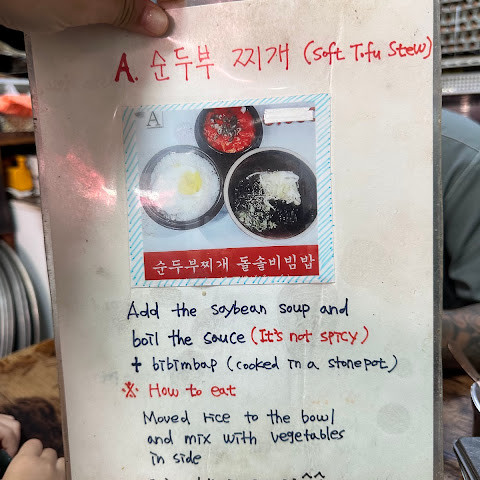 A. 순두부 찌개 (Soft Tofu Stew)
A
순두부찌개 돌솥비빔밥
Add the soybean soup and
boil the sauce (It's not spicy)
+ bibimbap (cooked in a stonepot)
※ How to eat
Moved rice to the bowl
and mix with vegetables
in side